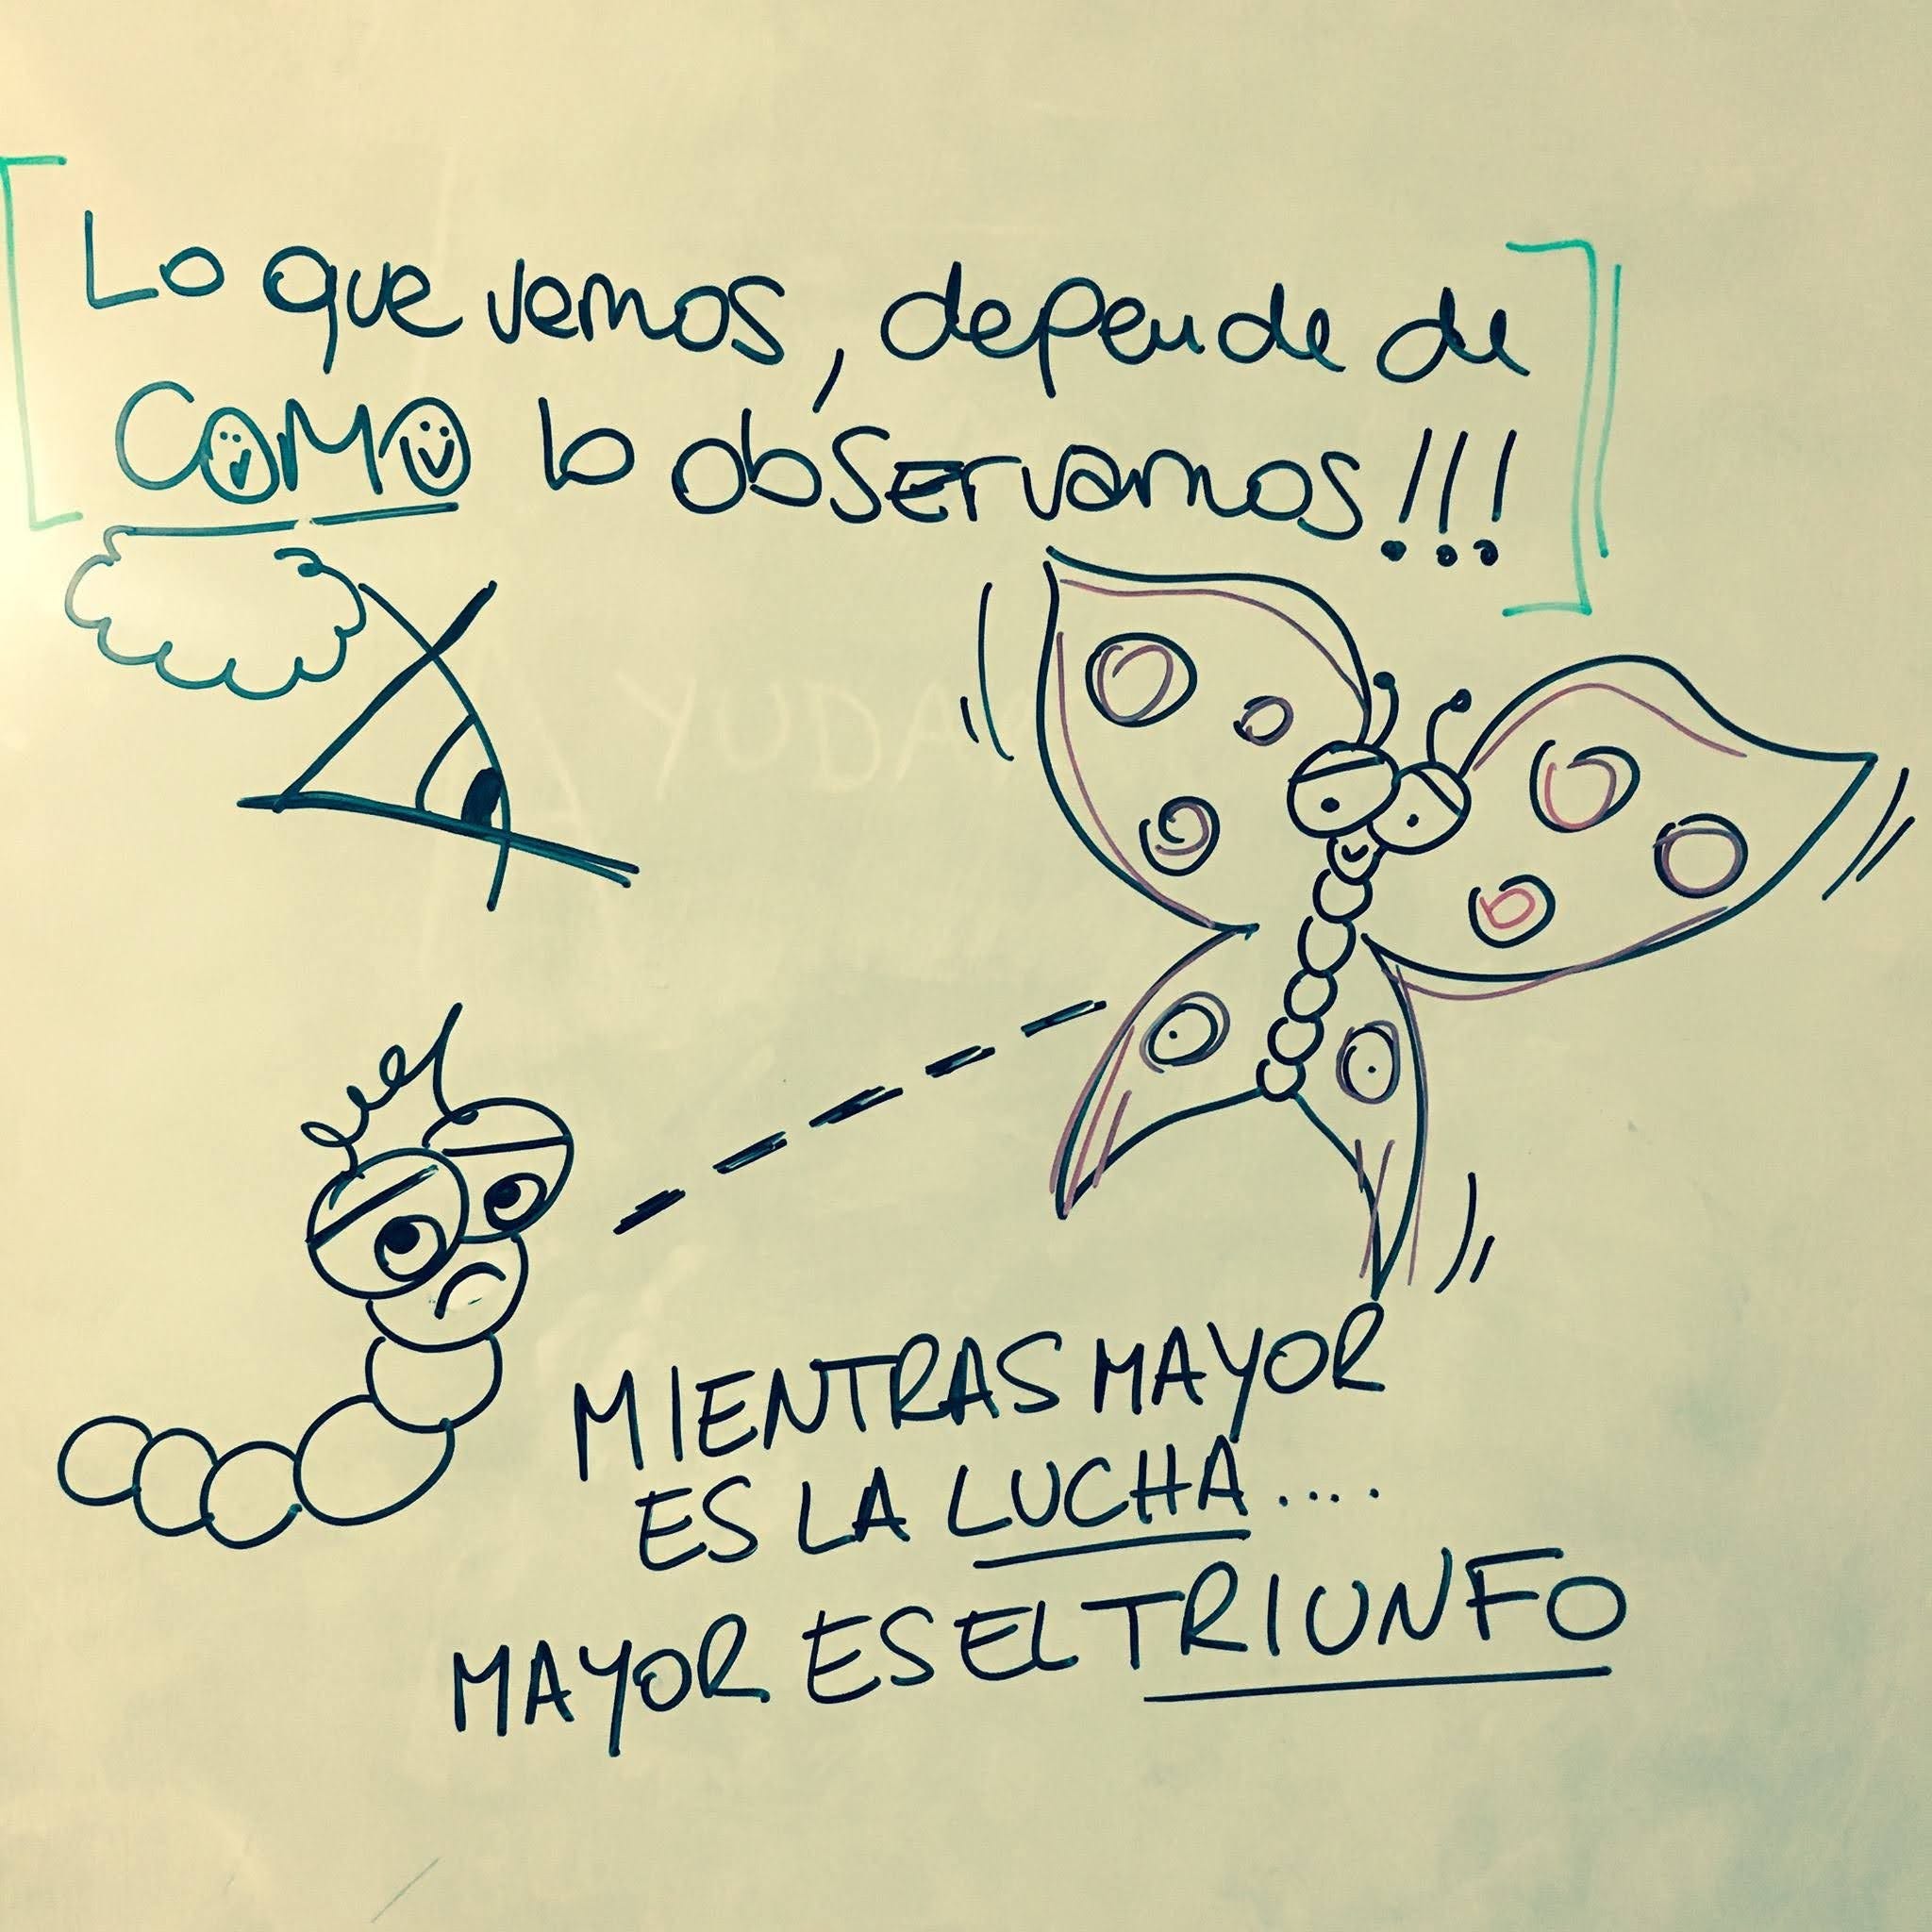 Lo que vemos, depende de
COMO lo observamos!!!
MIENTRAS MAYOR
ES LA LUCHA....
MAYOR ES EL TRIUNFO